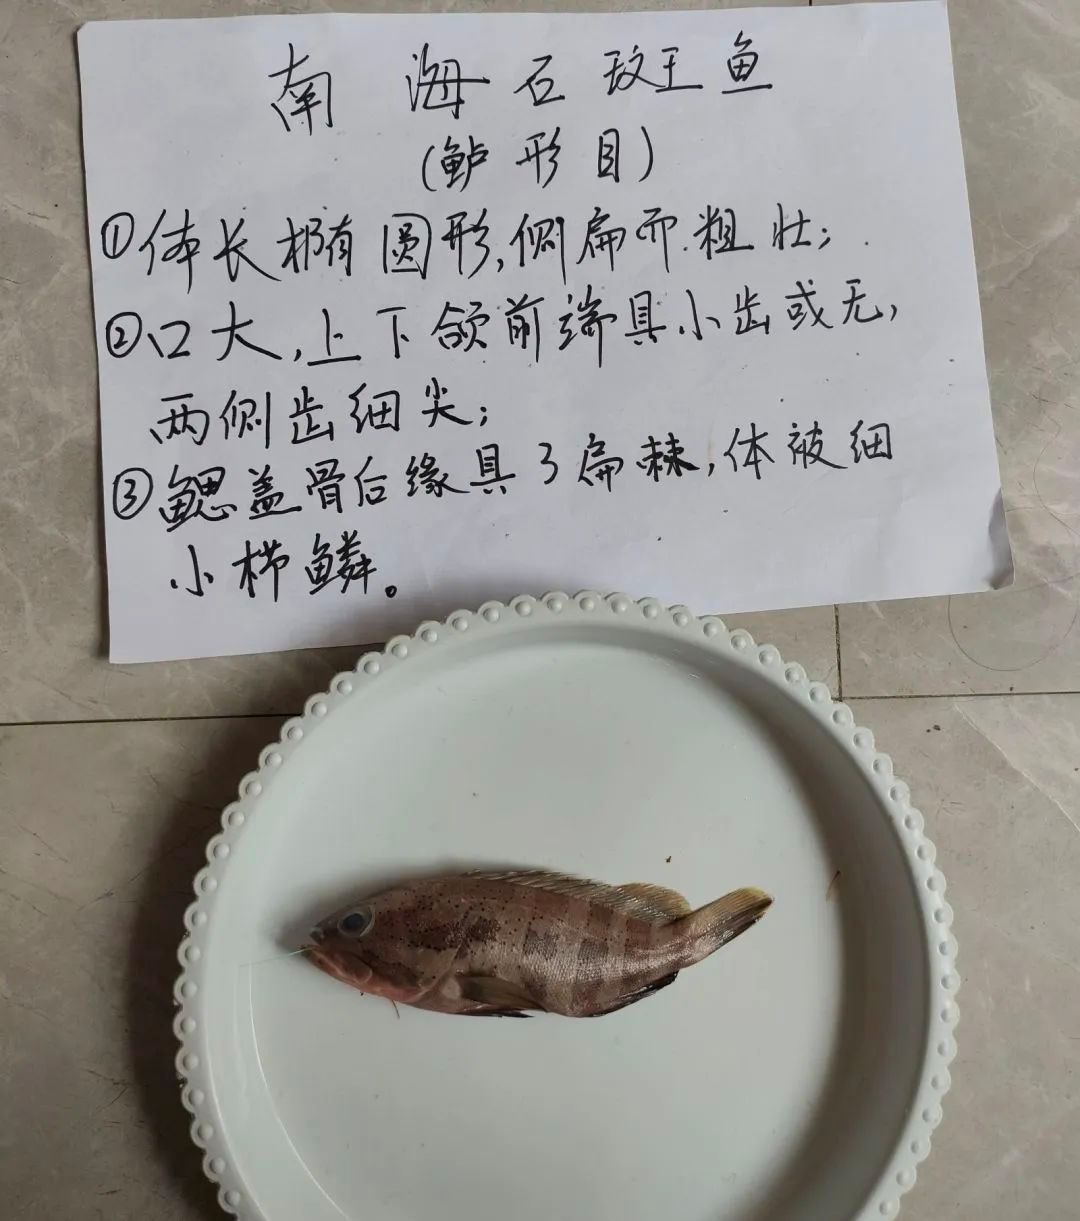 南海石斑鱼
(鲈形目)
①体长椭圆形,侧扁而粗壮;
②口大,上下颌前端具小齿或无,
两侧齿细尖;
③鳃盖骨后缘具3扁棘,体被细
小栉鳞。